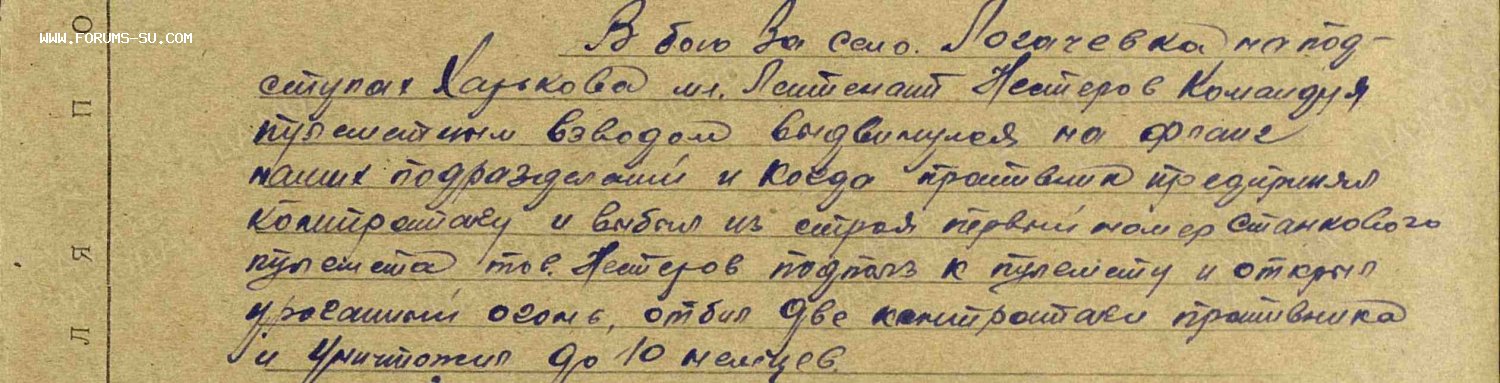 WWW.FORUMS-SU.COM
В бою За село. Логачевка на под-
ступах Харькова мл. Лейтенант Нестеров Командуя
пулеметным взводом выдвинулся на фланг
наших подразделений и когда противник предпринял
контратаку и выбыл из строя первый номер станкового
пулемета тов. Нестеров подполз к пулемету и открыл
ураганный огонь, отбил две контратаки противника
и уничтожил до 10 немцев.
Л Я П О